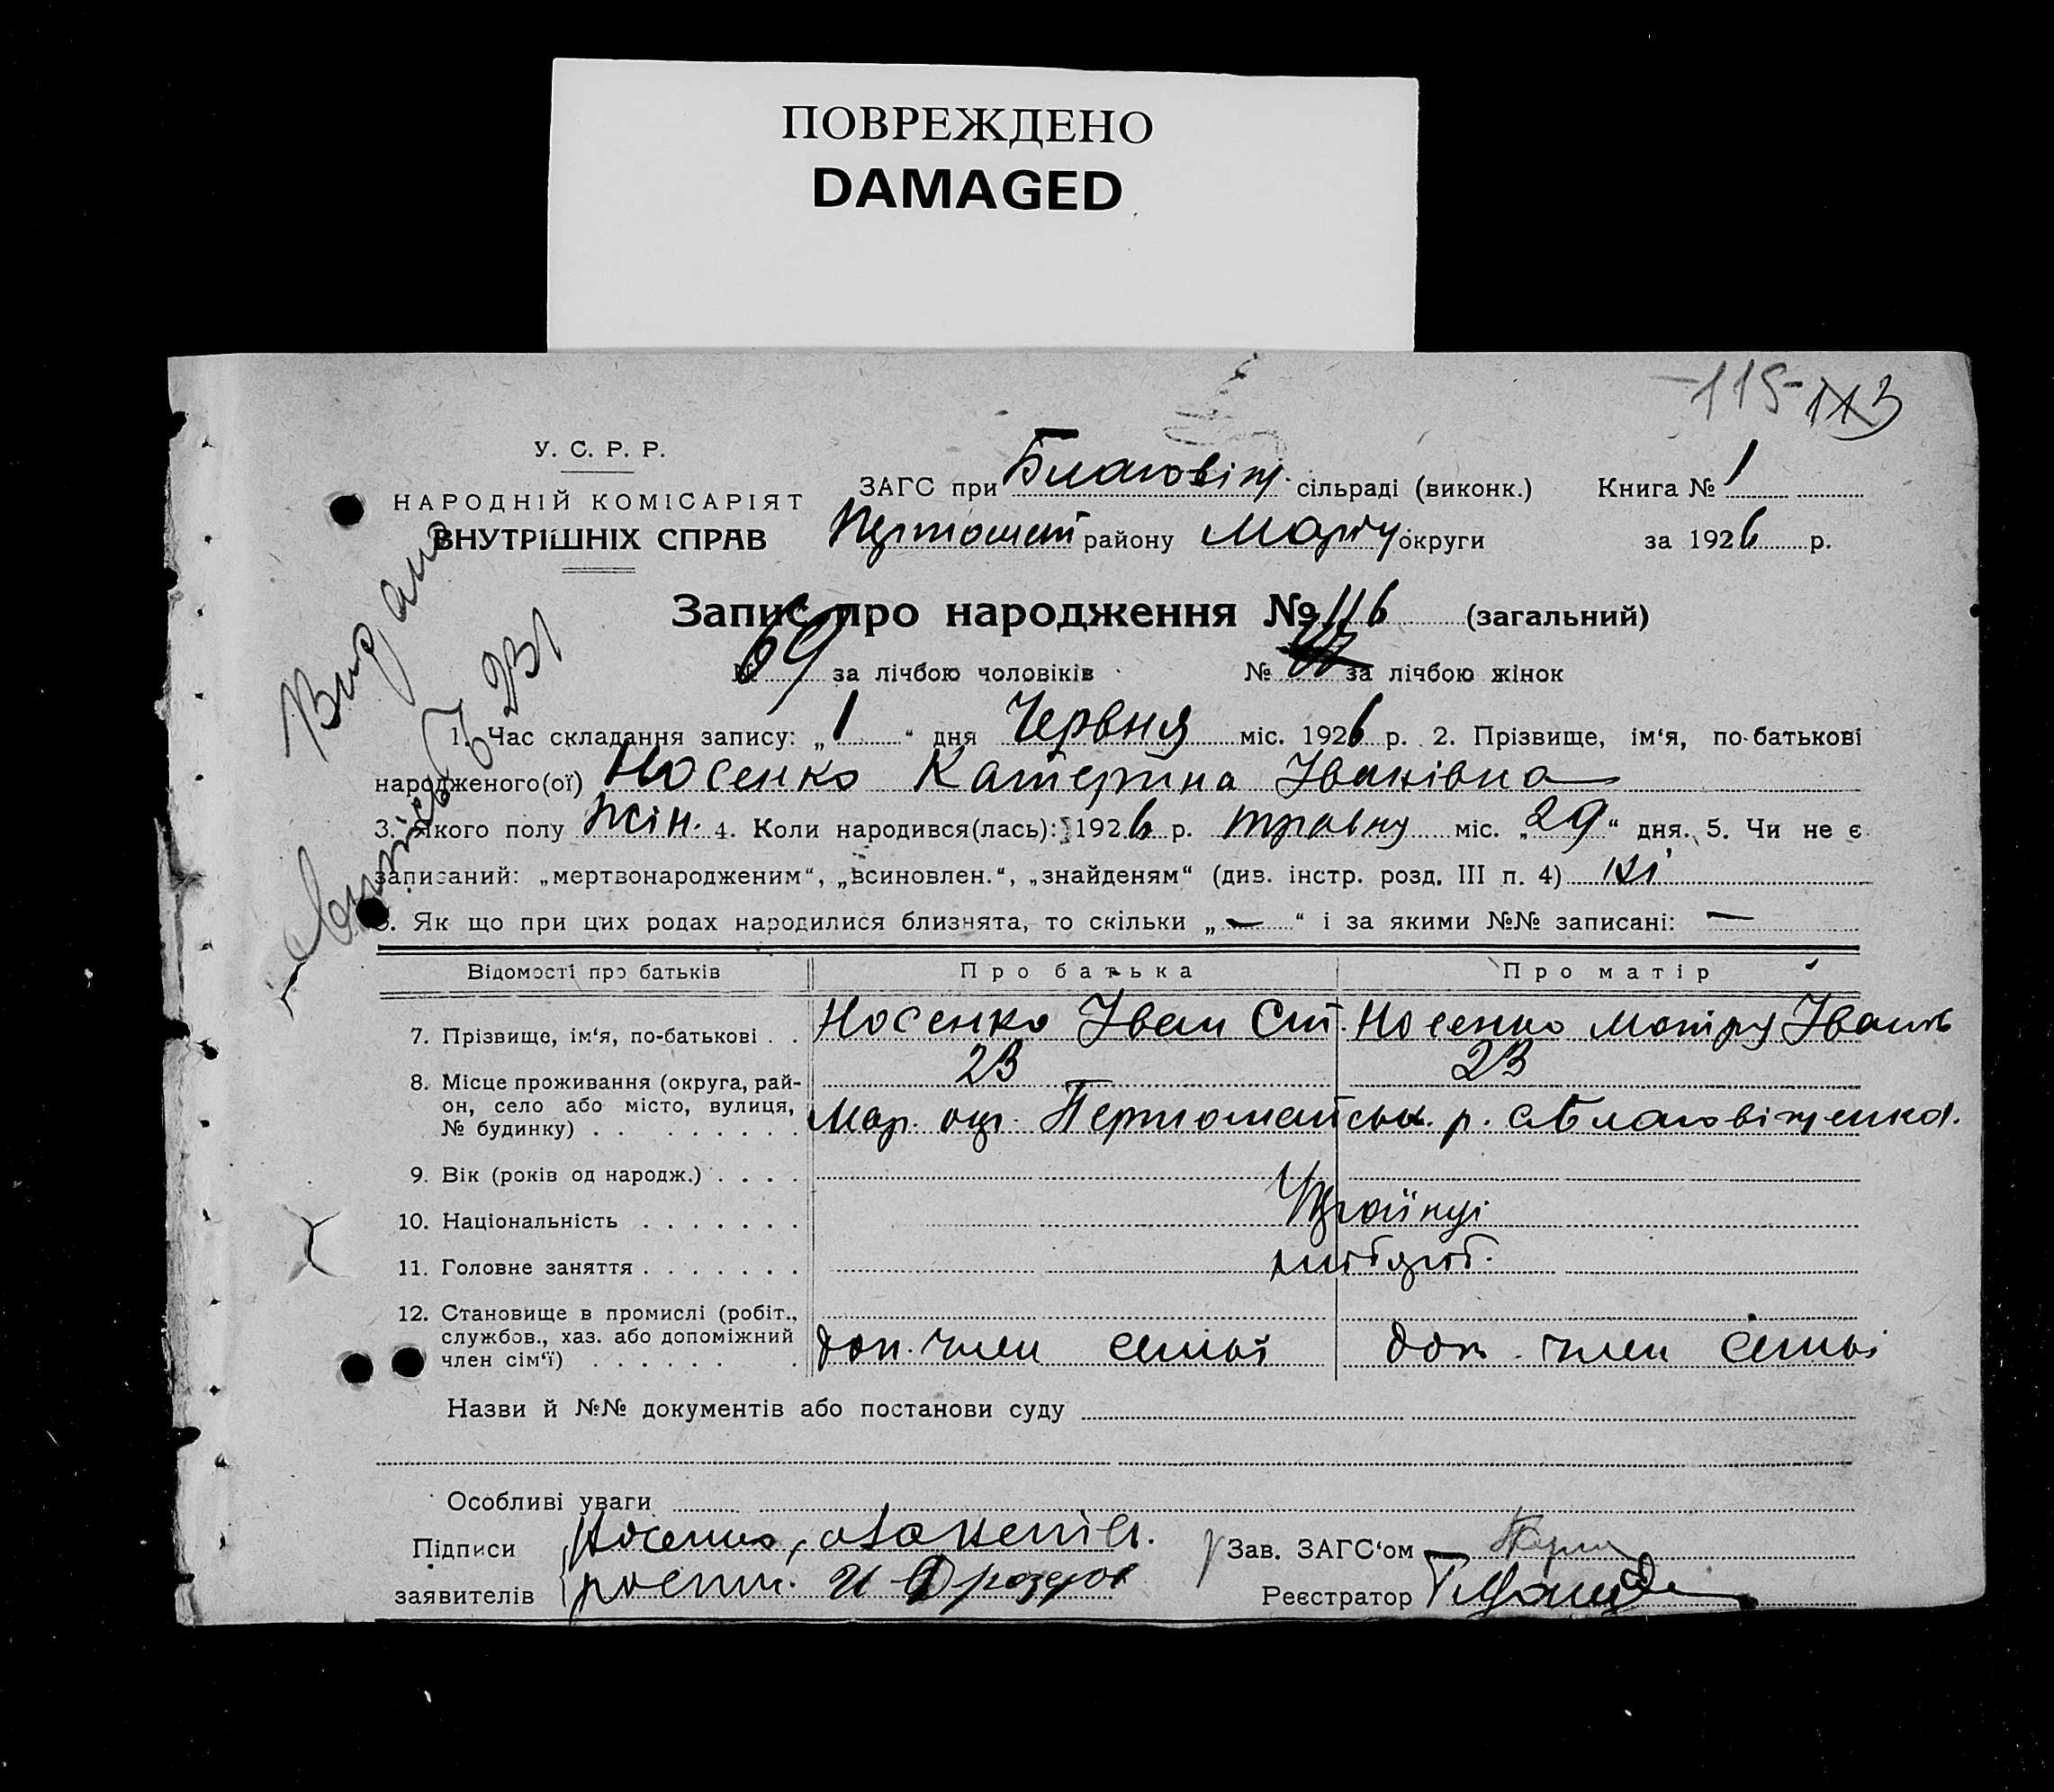 ПОВРЕЖДЕНО
DAMAGED
-115- 113
У. С. Р. Р.
НАРОДНІЙ КОМІСАРІЯТ
ВНУТРІШНІХ СПРАВ
ЗАГС при Благовіщ. сільраді (виконк.) Книга № 1
району Маріу округи за 1926 р.
Видано
231
Запис про народження № 116 (загальний)
№ 69 за лічбою чоловіків № за лічбою жінок
1. Час складання запису: „1“ дня Червня міс. 1926 р. 2. Прізвище, ім‘я, по-батькові
народженого(ої) Носенко Катерина Іванівна
3. Якого полу жін. 4. Коли народився(лась): 1926 р. травня міс. „29“ дня. 5. Чи не є
записаний: „мертвонародженим“, „всиновлен.“, „знайденям“ (див. інстр. розд. III п. 4) ні
6. Як що при цих родах народилися близнята, то скільки „—“ і за якими №№ записані: —
Відомості про батьків Про батька Про матір
7. Прізвище, ім‘я, по-батькові . . Носенко Іван Ст. Носенко Мотря Іванів
23 23
8. Місце проживання (округа, рай-
он, село або місто, вулиця,
№ будинку) . . . . . . . . Мар. окр. Першомайськ. р. с. Благовіщенка.
9. Вік (років од народж.) . . . .
10. Національність . . . . . . . Українці
11. Головне заняття . . . . . . . хлібороб.
12. Становище в промислі (робіт.,
службов., хаз. або допоміжний
член сім‘ї) . . . . . . . доп. член семьї доп. член семьї
Назви й №№ документів або постанови суду
Особливі уваги
Підписи Носенко, Зав. ЗАГС‘ом
заявителів Реєстратор